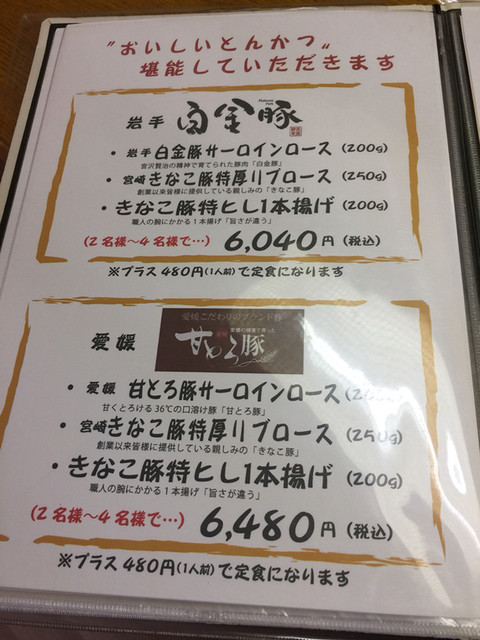 "おいしいとんかつ"
堪能していただきます
岩手 白金豚
・岩手 白金豚サーロインロース (200g)
宮沢賢治の精神で育てられた豚肉「白金豚」
・宮崎 きなこ豚特厚リブロース (250g)
創業以来皆様に提供している親しみの「きなこ豚」
・きなこ豚特ヒレ1本揚げ (200g)
職人の腕にかかる1本揚げ「旨さが違う」
(2名様〜4名様で…) 6,040円 (税込)
※プラス480円(1人前)で定食になります
愛媛こだわりのブランド豚
愛媛の蜂蜜で育った
愛媛 甘とろ豚
・愛媛 甘とろ豚サーロインロース
甘くとろける36℃の口溶け豚「甘とろ豚」
・宮崎 きなこ豚特厚リブロース (250g)
創業以来皆様に提供している親しみの「きなこ豚」
・きなこ豚特ヒレ1本揚げ (200g)
職人の腕にかかる1本揚げ「旨さが違う」
(2名様〜4名様で…) 6,480円 (税込)
※プラス480円(1人前)で定食になります